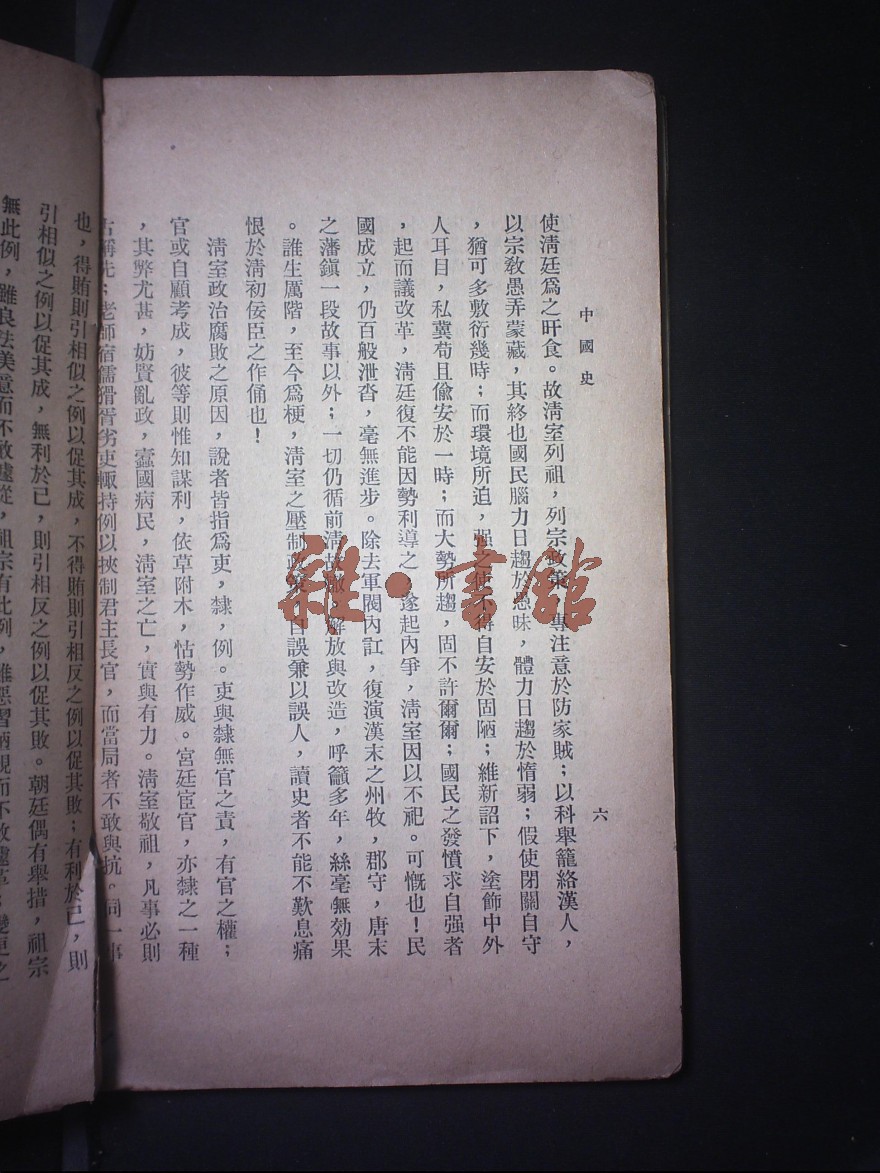 中國史
六
使清廷爲之旰食。故清室列祖，列宗政策，專注意於防家賊；以科舉籠絡漢人，
以宗敎愚弄蒙藏，其終也國民腦力日趨於愚昧，體力日趨於惰弱；假使閉關自守
，猶可多敷衍幾時；而環境所迫，强之使不得自安於固陋；維新詔下，塗飾中外
人耳目，私冀苟且偸安於一時；而大勢所趨，固不許爾爾；國民之發憤求自强者
，起而議改革，清廷復不能因勢利導之，遂起內爭，清室因以不祀。可慨也！民
國成立，仍百般泄沓，毫無進步。除去軍閥內訌，復演漢末之州牧，郡守，唐末
之藩鎭一段故事以外；一切仍循前清故轍，解放與改造，呼籲多年，絲毫無効果
。誰生厲階，至今爲梗，清室之壓制政策，自誤兼以誤人，讀史者不能不歎息痛
恨於清初佞臣之作俑也！
清室政治腐敗之原因，說者皆指爲吏，隸，例。吏與隸無官之責，有官之權；
官或自顧考成，彼等則惟知謀利，依草附木，怙勢作威。宮廷宦官，亦隸之一種
，其弊尤甚，妨賢亂政，蠹國病民，清室之亡，實與有力。清室敬祖，凡事必則
古稱先；老師宿儒猾胥劣吏輒持例以挾制君主長官，而當局者不敢與抗。同一事
也，得賄則引相似之例以促其成，不得賄則引相反之例以促其敗；有利於己，則
引相似之例以促其成，無利於己，則引相反之例以促其敗。朝廷偶有舉措，祖宗
無此例，雖良法美意而不敢遽從，祖宗有此例，雖惡習陋規而不敢遽革；變更之
雜·書館